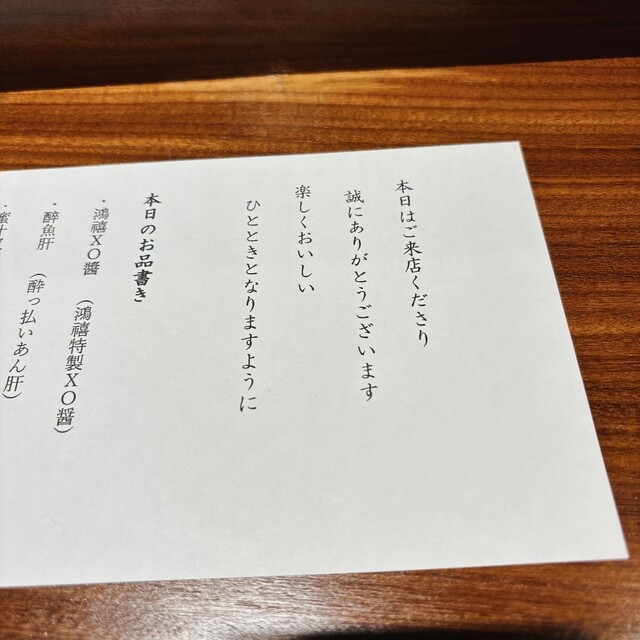 本日はご来店くださり
誠にありがとうございます
楽しくおいしい
ひとときとなりますように
本日のお品書き
・鴻禧XO醤 （鴻禧特製XO醤）
・酔魚肝 （酔っ払いあん肝）